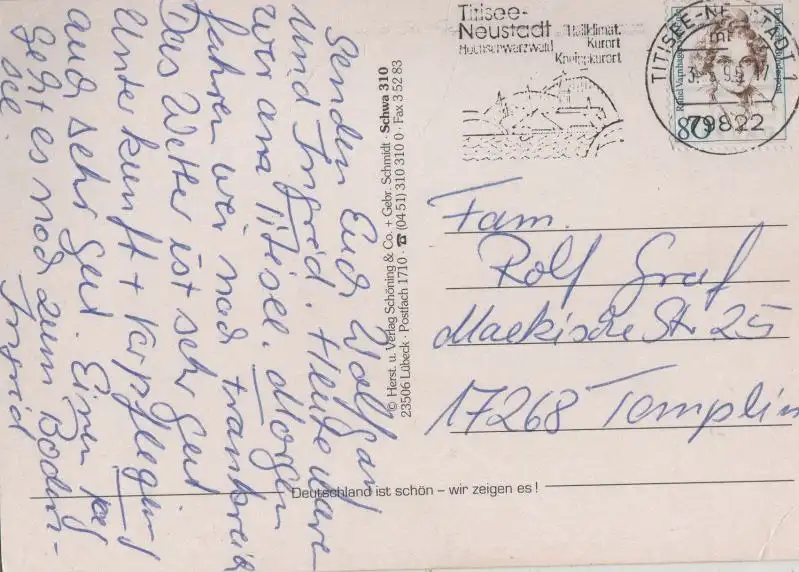 Senden Euch Wolfgang
und Ingrid. Heute waren
wir am Titisee. Morgen
fahren wir nach Frankreich
Das Wetter ist sehr gut
Unterkunft + Verpflegung
auch sehr gut. Einen Tag
geht es noch zum Boden-
see. Ingrid
© Herst. u. Verlag Schöning & Co. + Gebr. Schmidt · Schwa 310
23506 Lübeck · Postfach 1710 · ☎ (04 51) 310 310 0 · Fax 3 52 83
Titisee-
Neustadt
Hochschwarzwald
Heilklimat.
Kurort
Kneippkurort
TITISEE-NEUSTADT 1
79822
Rahel Varnhagen
80
Fam.
Rolf Graf
Maekische Str. 25
17268 Templin
Deutschland ist schön – wir zeigen es!